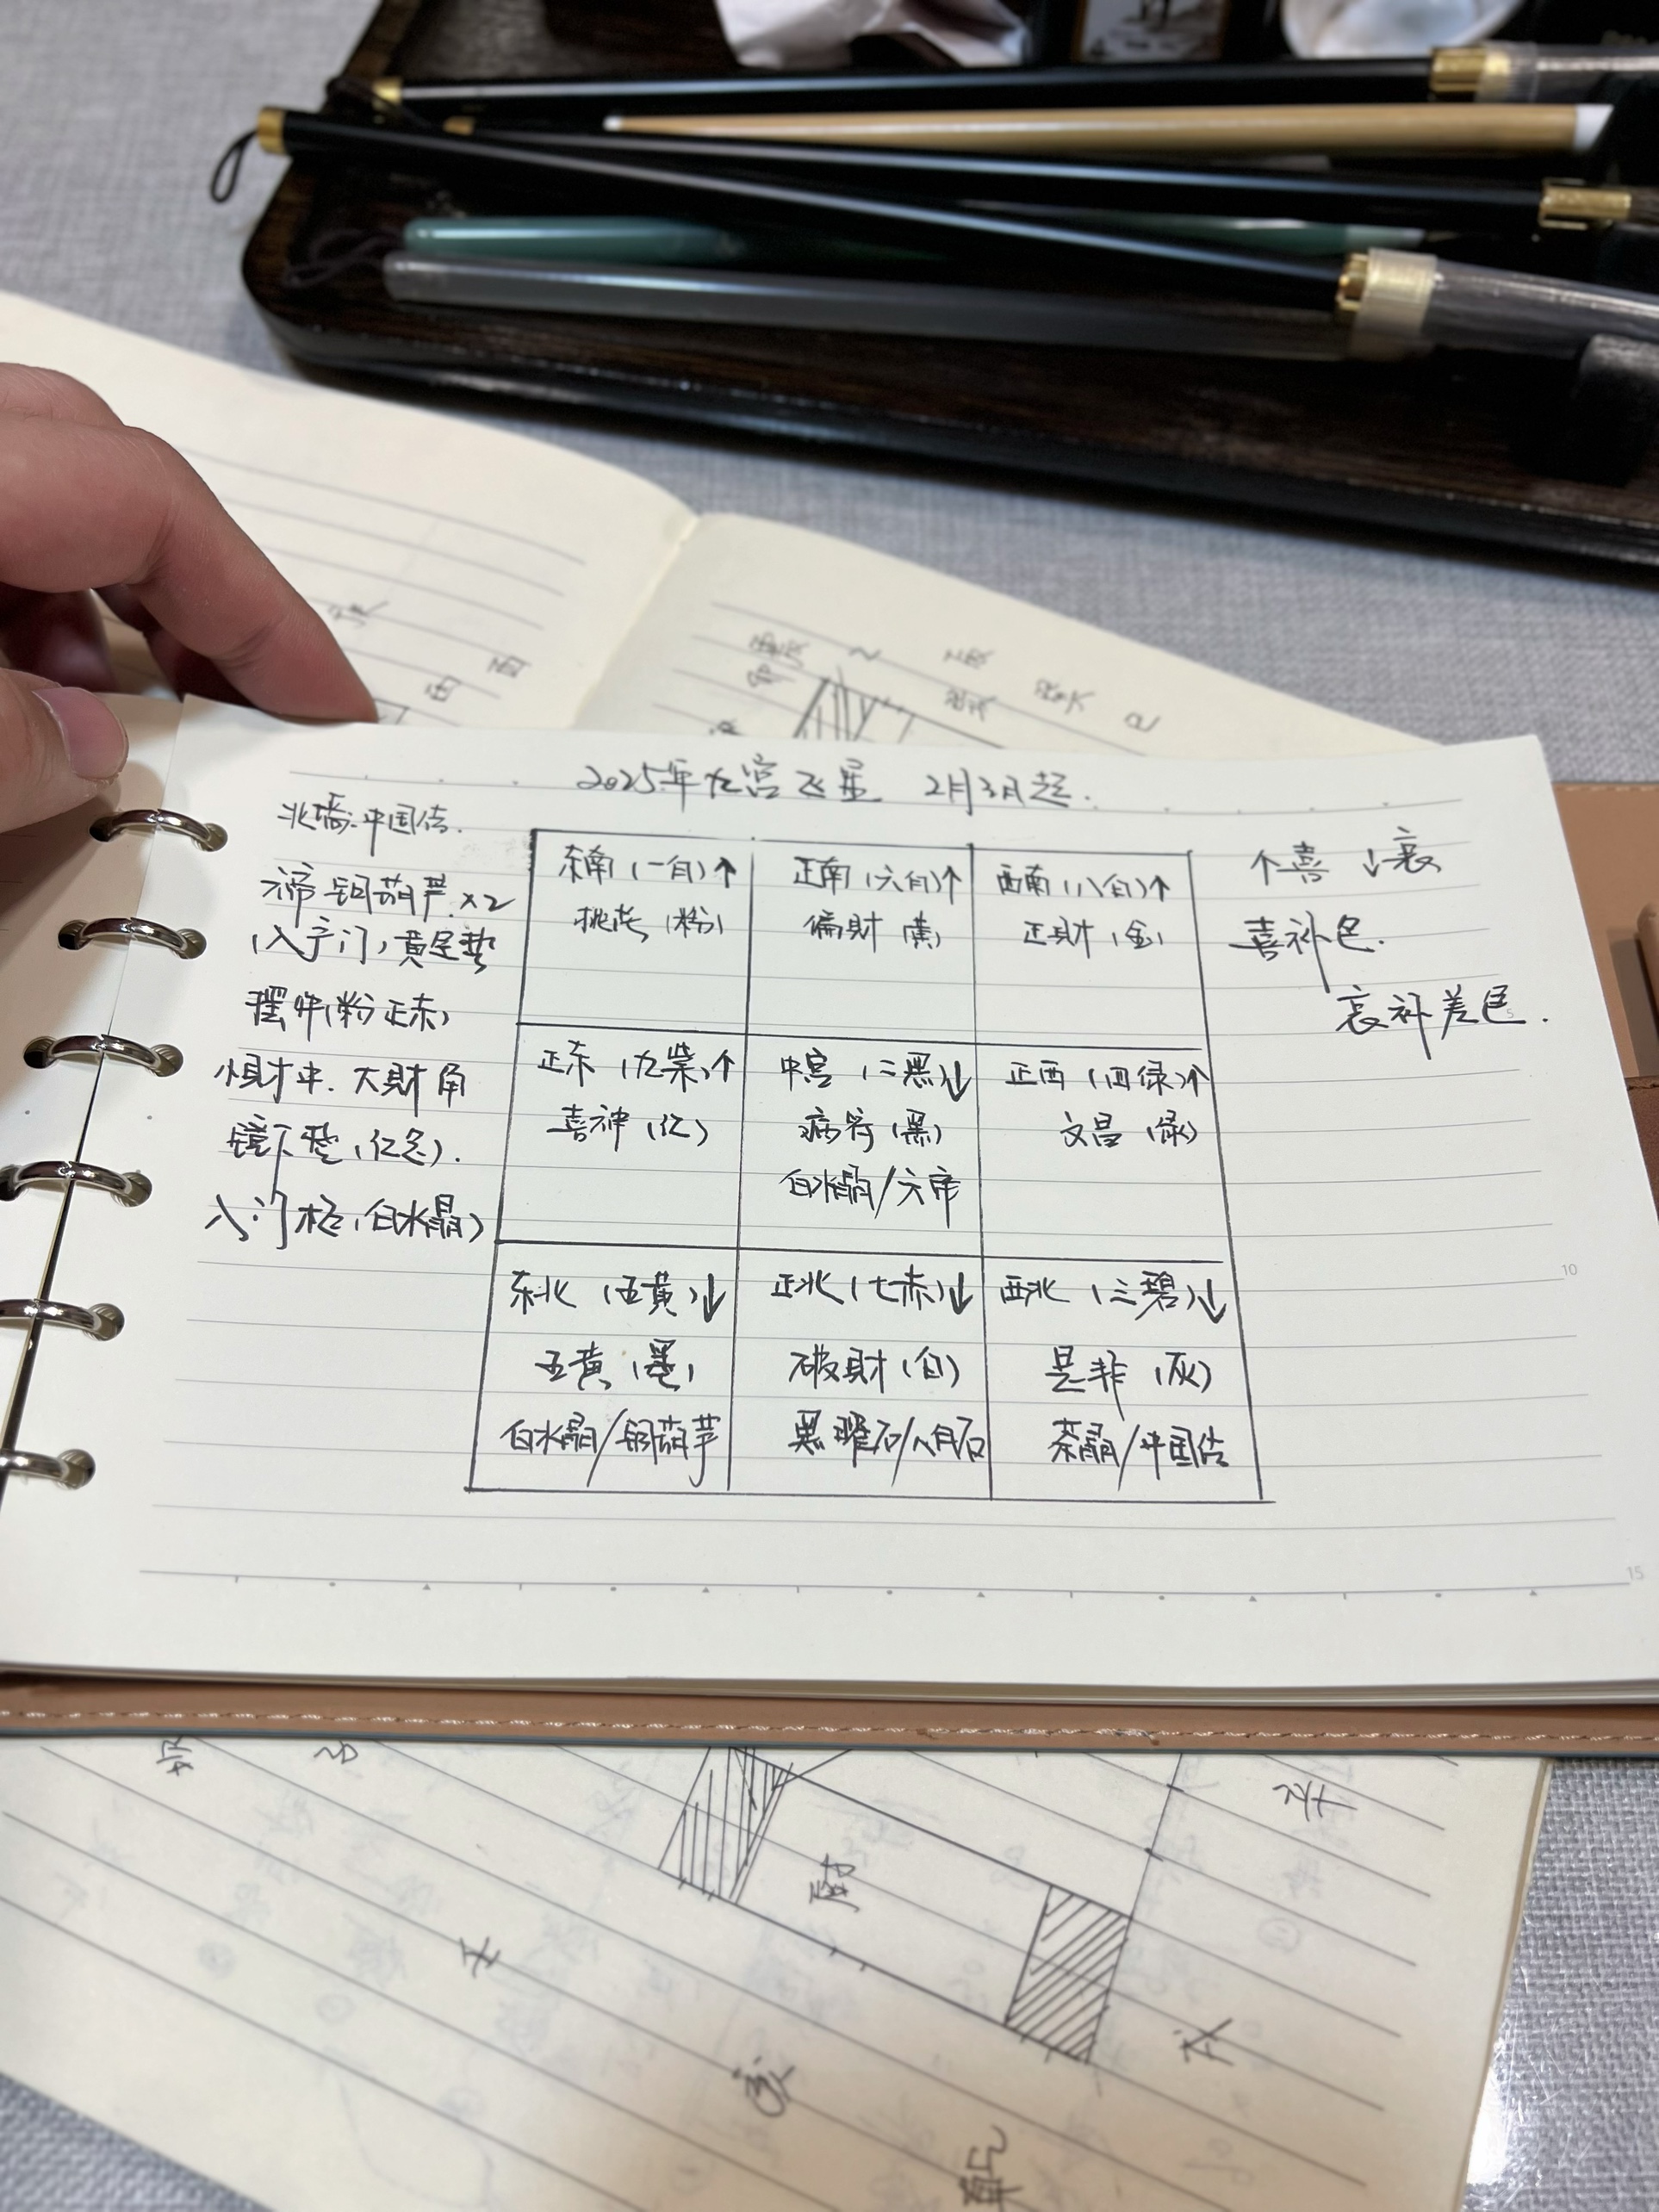 2025年九宫飞星 2月3日起.
北墙:中国结.
六帝 铜葫芦.×2
(入户门)黄色垫
摆件(粉 正东)
大财角
镜下垫(红色).
入门柜(白水晶)
东南(一白)↑
桃花(粉)
正南(六白)↑
偏财(黄)
西南(八白)↑
正财(金)
正东(九紫)↑
喜神(红)
中宫(二黑)↓
病符(黑)
白水晶/六帝
正西(四绿)↑
文昌(绿)
东北(五黄)↓
五黄(墨)
白水晶/铜葫芦
正北(七赤)↓
破财(白)
黑曜石/
西北(三碧)↓
是非(灰)
茶晶/中国结
个喜 ↓衰
喜补色.
衰补差色.
5
10
15
财